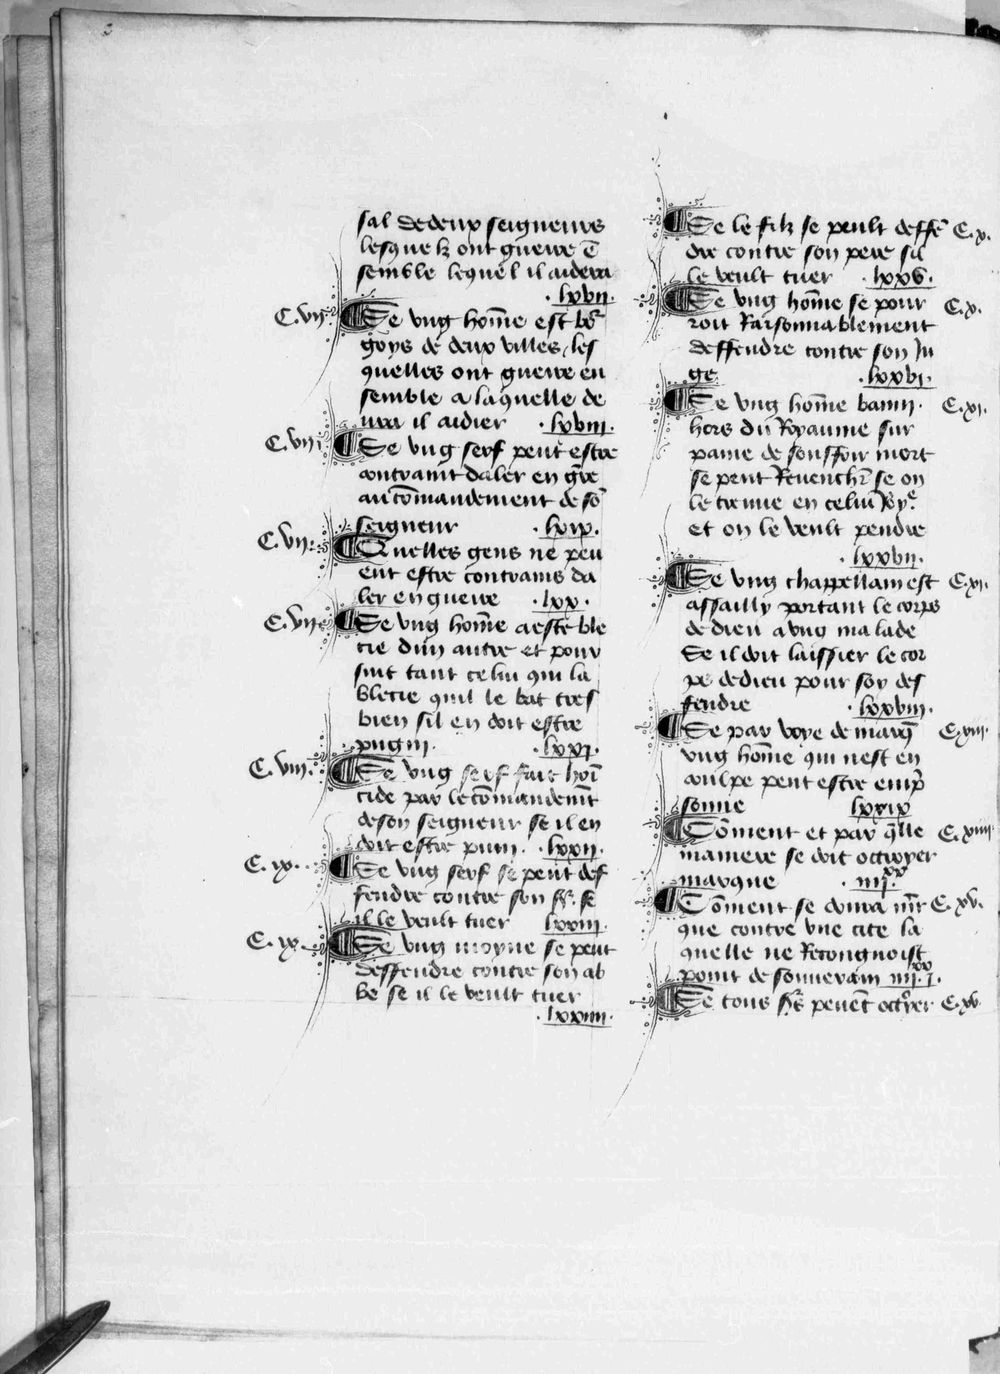 sal de deux seigneurs
lesquelz ont guerre ē
semble lequel il aidera
.lxvii.
C.vii. ¶ Se ung hōme est bor̄
goys de deux villes les
quelles ont guerre en
semble a laquelle de
ura il aidier .lxviii.
C.vii. ¶ Se ung serf peut estre
contraint daler en gr̄re
au cōmandement de sō
seigneur .lxix.
C.vii. ¶ Quelles gens ne peu
ent estre contrains da
ler en guerre .lxx.
C.vii. ¶ Se ung hōme a este ble
cie dun autre et pour
suit tant celui qui la
blecie quil le bat tres
bien sil en doit estre
pugni. .lxxi.
C.viii. ¶ Se ung serf fait homī
cide par le cōmandemēt
de son seigneur se il en
doit estre puni. .lxxii.
C.ix. ¶ Se ung serf se peut def
fendre contre son sr̄. se
il le veult tuer lxxiii.
C.ix. ¶ Se ung moyne se peut
deffendre contre son ab
be se il le veult tuer
.lxxiiii.
¶ Se le filz se peult deffē C.x.
dre contre son pere sil
le veult tuer .lxxv.
¶ Se ung hōme se pour C.x.
roit Raisonnablement
deffendre contre son Ju
ge .lxxvi.
¶ Se ung hōme banni C.xi.
hors du Royaume sur
paine de souffrir mort
se peut Revench̄r se on
le treuue en celui Roye
et on le veult pendre
.lxxvii.
¶ Se ung chappellain est C.xii.
assailly portant le corps
de dieu a ung malade
Se il doit laissier le cor
ps de dieu pour soy def
fendre .lxxviii.
¶ Se par voye de marq̄ C.xiii.
ung hōme qui nest en
coulpe peut estre emp̄
sonne lxxix
¶ Cōment et par q̄lle C.xiiii.
maniere se doit octroyer
marque .iiii.xx
¶ Cōment se donra mr̄ C.xv.
que contre une cite la
quelle ne Recongnoist
point de souuerain iiii.xx j.
¶ Se tous sr̄s peuēt octroyer C.xv.